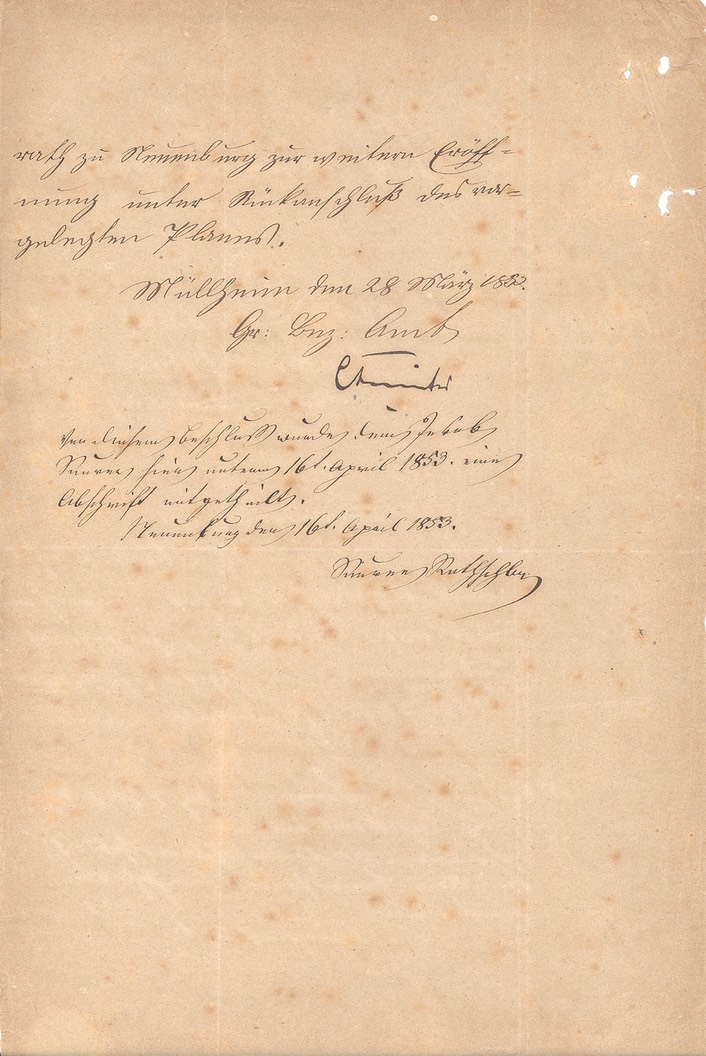 rath zu Neuenburg zur weitern Eröff=
nung unter Rückanschluß des vor=
gelegten Planes.
Müllheim den 28 März 1853.
Gr: Bez: Amt
Von diesem Beschluß wurde dem Jakob
hier unterm 16t. April 1853. eine
Abschrift mitgetheilt.
Neuenburg den 16t. April 1853.
Rathschbr